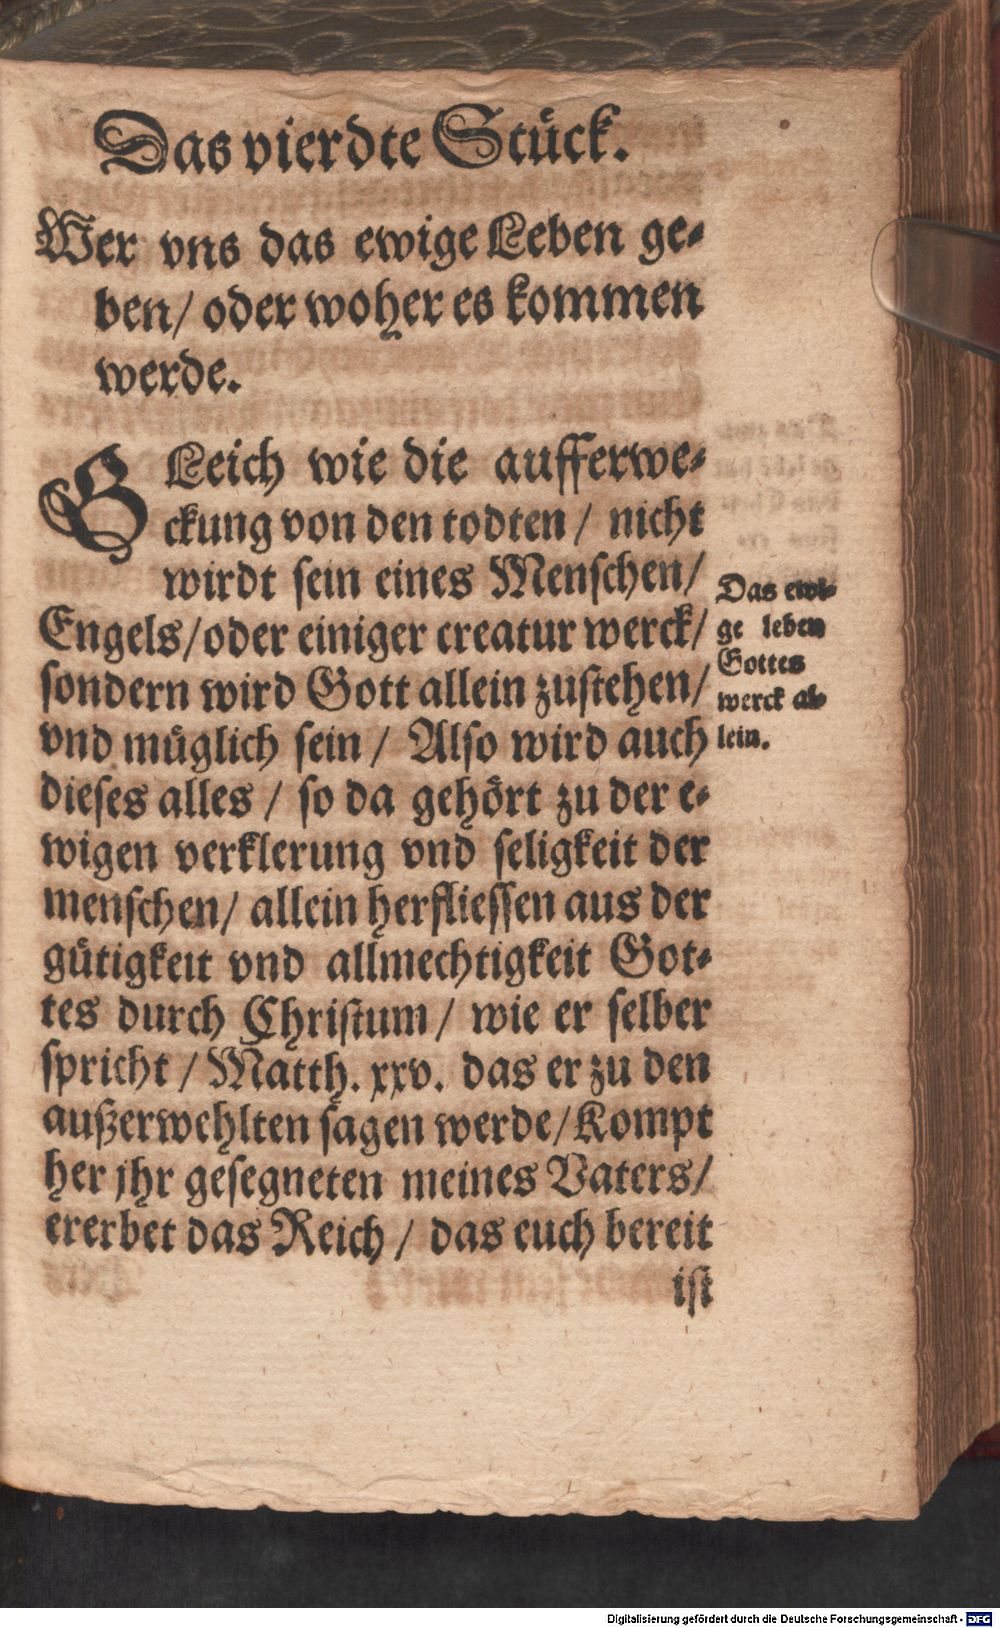 Das vierdte Stück.
Wer vns das ewige Leben ge-
ben/ oder woher es kommen
werde.
GLeich wie die aufferwe-
ckung von den todten / nicht
wirdt sein eines Menschen/
Engels/ oder einiger creatur werck/
sondern wird Gott allein zustehen/
vnd müglich sein / Also wird auch
dieses alles / so da gehört zu der e-
wigen verklerung vnd seligkeit der
menschen/ allein herfliessen aus der
gütigkeit vnd allmechtigkeit Got-
tes durch Christum / wie er selber
spricht / Matth. xxv. das er zu den
außerwehlten sagen werde/ Kompt
her jhr gesegneten meines Vaters/
ererbet das Reich / das euch bereit
ist
Das ewi-
ge leben
Gottes
werck al-
lein.
Digitalisierung gefördert durch die Deutsche Forschungsgemeinschaft - DFG